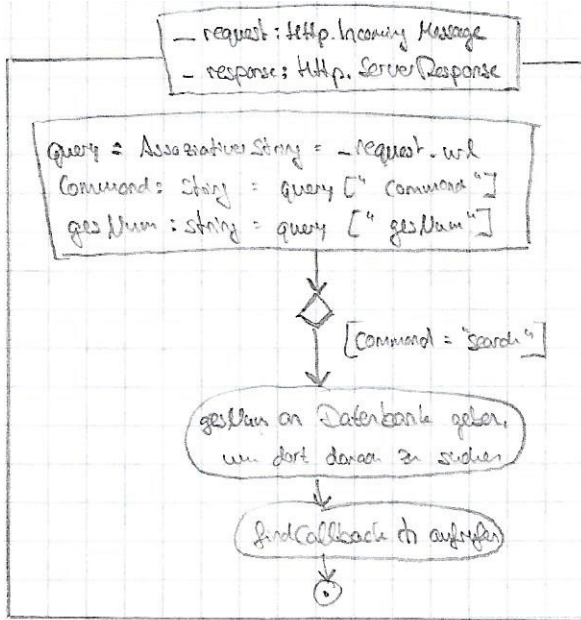 _ request : Http.Incoming Message
_ response : Http.ServerResponse
query : AssoziativerString = _request.url
Command : String = query [" command "]
gesNum : string = query [" gesNum "]
[Command = "search"]
gesNum an Datenbank geben,
um dort danach zu suchen
findCallback aufrufen